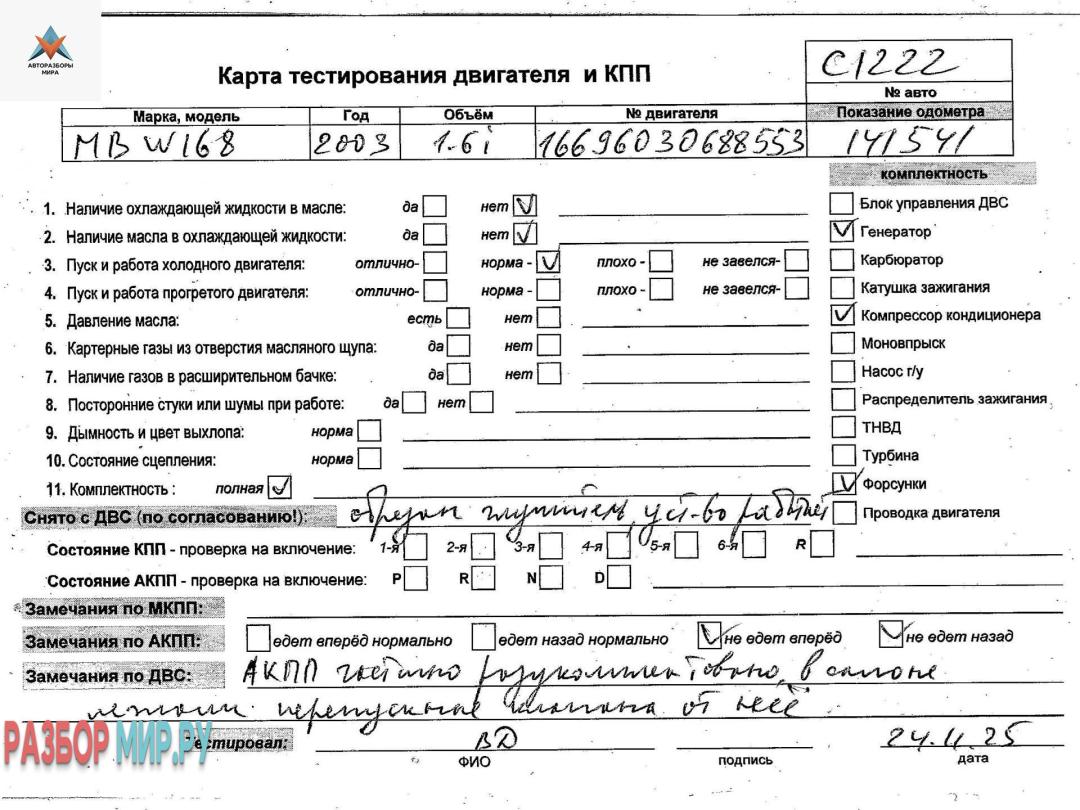 АВТОРАЗБОРЫ
МИРА
Карта тестирования двигателя и КПП
C1222
№ авто
Марка, модель Год Объём № двигателя Показание одометра
MB W168 2003 1.6i 16696030688553 141541
комплектность
1. Наличие охлаждающей жидкости в масле: да нет
Блок управления ДВС
2. Наличие масла в охлаждающей жидкости: да нет
Генератор
3. Пуск и работа холодного двигателя: отлично- норма - плохо - не завелся-
Карбюратор
4. Пуск и работа прогретого двигателя: отлично- норма - плохо - не завелся-
Катушка зажигания
5. Давление масла: есть нет
Компрессор кондиционера
6. Картерные газы из отверстия масляного щупа: да нет
Моновпрыск
7. Наличие газов в расширительном бачке: да нет
Насос г/у
8. Посторонние стуки или шумы при работе: да нет
Распределитель зажигания
9. Дымность и цвет выхлопа: норма
ТНВД
10. Состояние сцепления: норма
Турбина
11. Комплектность : полная
Форсунки
Снято с ДВС (по согласованию!): обрезан глушитель, уст-во работает
Проводка двигателя
Состояние КПП - проверка на включение: 1-я 2-я 3-я 4-я 5-я 6-я R
Состояние АКПП - проверка на включение: P R N D
Замечания по МКПП:
Замечания по АКПП: едет вперёд нормально едет назад нормально не едет вперёд не едет назад
Замечания по ДВС: АКПП частично разукомплектована, в салоне
лежали перепускные клапана от неё
РАЗБОРМИР.РУ
Тестировал: ВД 24.11.25
ФИО подпись дата